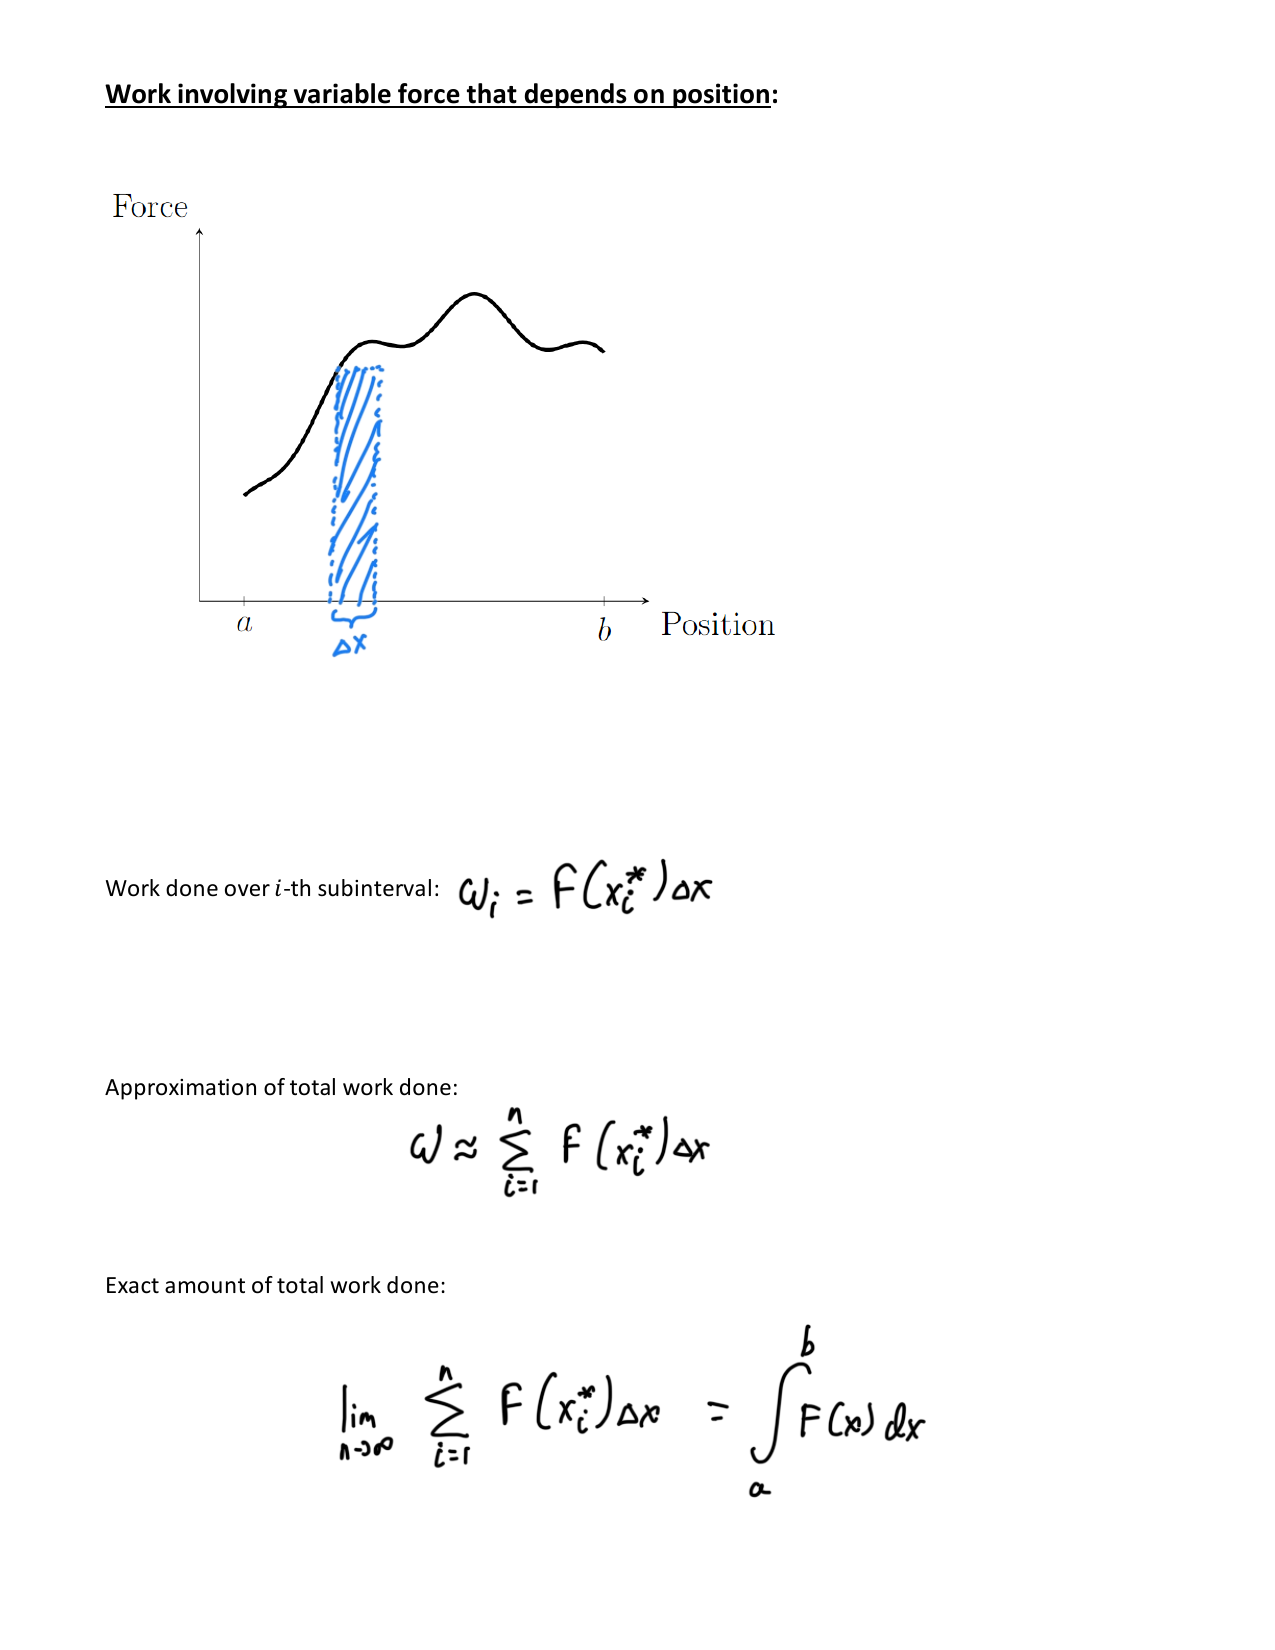 Work involving variable force that depends on position:
Force
a
b
Position
Δx
Work done over i-th subinterval: Wᵢ = F(xᵢ*)Δx
Approximation of total work done:
W ≈ ∑ᵢ₌₁ⁿ F(xᵢ*)Δx
Exact amount of total work done:
lim n→∞ ∑ᵢ₌₁ⁿ F(xᵢ*)Δx = ∫ₐᵇ F(x) dx